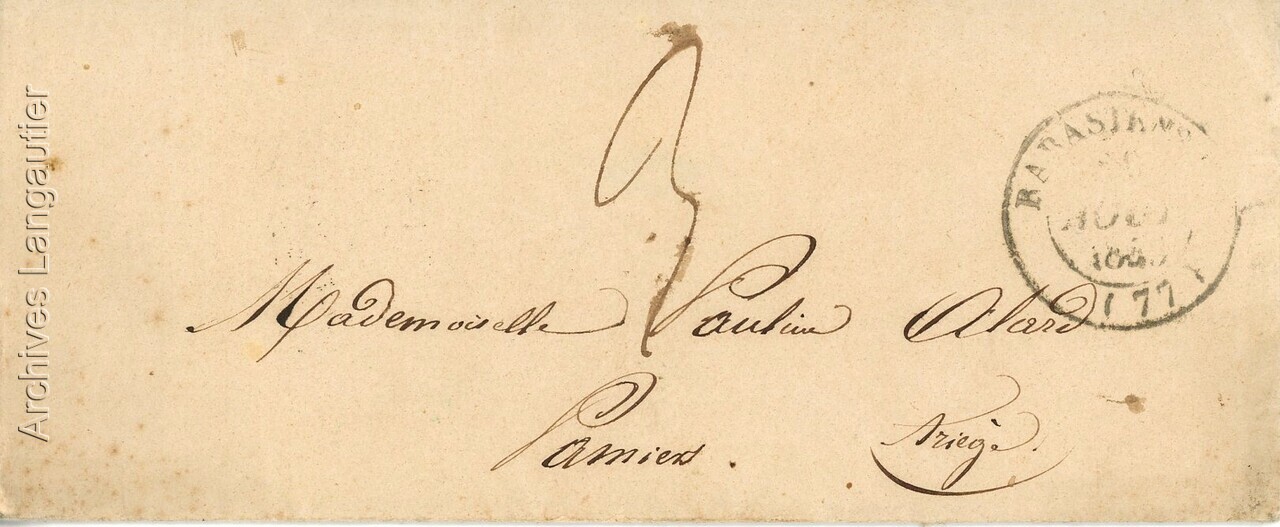 Archives Langautier
RABASTENS
AOUT
(77)
Mademoiselle Pauline Alard
Pamiers.
Ariège.